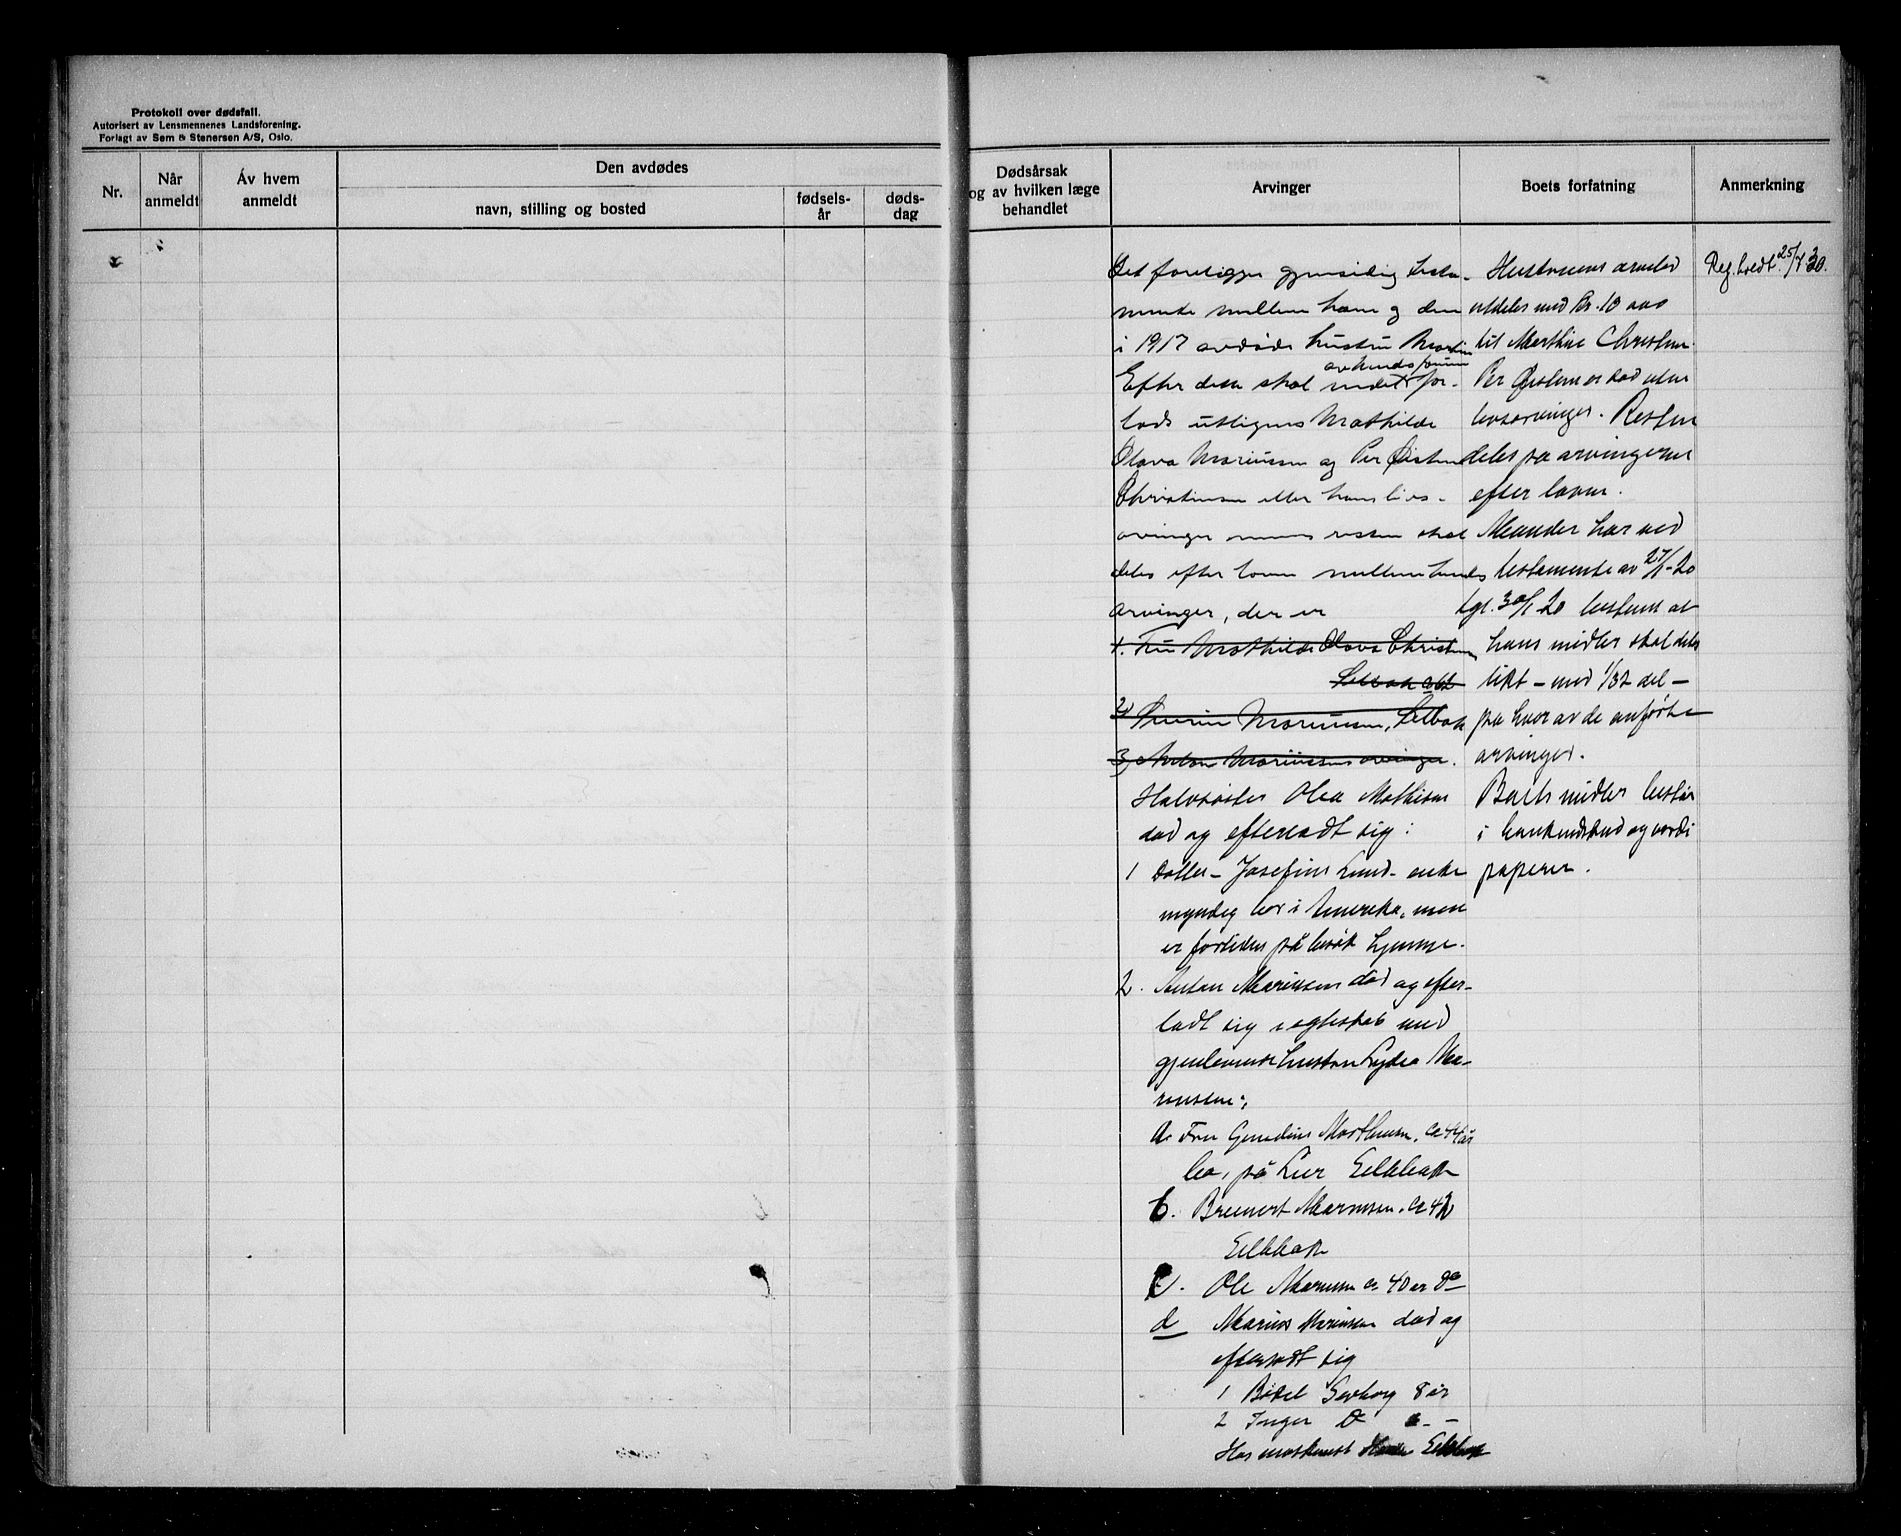 Protokoll over dødsfall.
Autorisert av Lensmennenes Landsforening.
Forlagt av Sem & Stenersen A/S, Oslo.
Nr.
Når anmeldt
Av hvem anmeldt
Den avdødes
navn, stilling og bosted
fødsels-år
døds-dag
Dødsårsak og av hvilken læge behandlet
Arvinger
Boets forfatning
Anmerkning
Det foreligger gjensidig testa-
mente mellem ham og den
i 1917 avdøde hustru
Efter dette skal
lods utlignes Mathilde
Olava Mariussen og Per Øistein
Christensen eller hans livs-
arvinger mens resten skal
deles efter loven mellem
arvinger, der er
1. Fru Mathilde Olava Christensen
Selbak
2) Mariussen, Selbak
3) Anton Mariussens arvinger.
Halvsøster Olea Mathisen
død og efterladt sig:
1 Datter - Josefine Lund - enke
myndig bor i Amerika, men
er for tiden på besøk hjemme.
2. Anton Mariussen død og efter-
ladt sig i egteskab med
gjenlevende hustru Lydia Ma-
riussen:
a. Fru Mathisen, ca 44 år
bor på Lier
b. Mariussen. ca 42
c. Ole Mariussen ca 40 år do
d Marius Mariussen død og
efterladt sig
1 Bodil 8 år
2 Inger
Hos
Hustruens arvelod
utdeles med Kr. 10 000
til Mathilde Christensen.
Per Øistein er død uten
livsarvinger. Resten
deles på arvingerne
efter loven.
har ved
testamente av 27/1-20
tgl. 30/1 20 bestemt at
hans midler skal deles
likt - med 1/32 del -
på hver av de anførte
arvinger.
Boets midler består
i bankinnskud og verdi
papirer.
Reg. holdt 25/7 30.